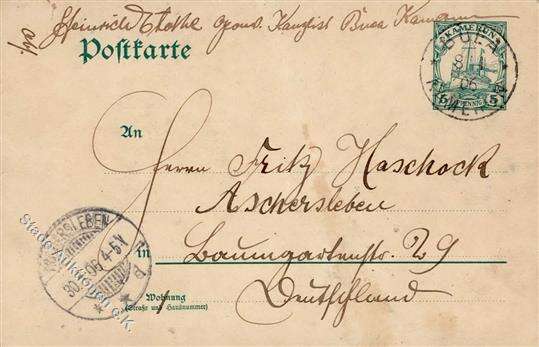 Heinrich Buea Kamerun
Postkarte
KAMERUN
5 PFENNIG 5
BUEA
06
KAMERUN
An
Herrn Fritz Haschock
Aschersleben
in Baumgartenstr. 29
Deutschland
Wohnung
(Straße und Hausnummer)
ASCHERSLEBEN
30. 06. 4-5 V